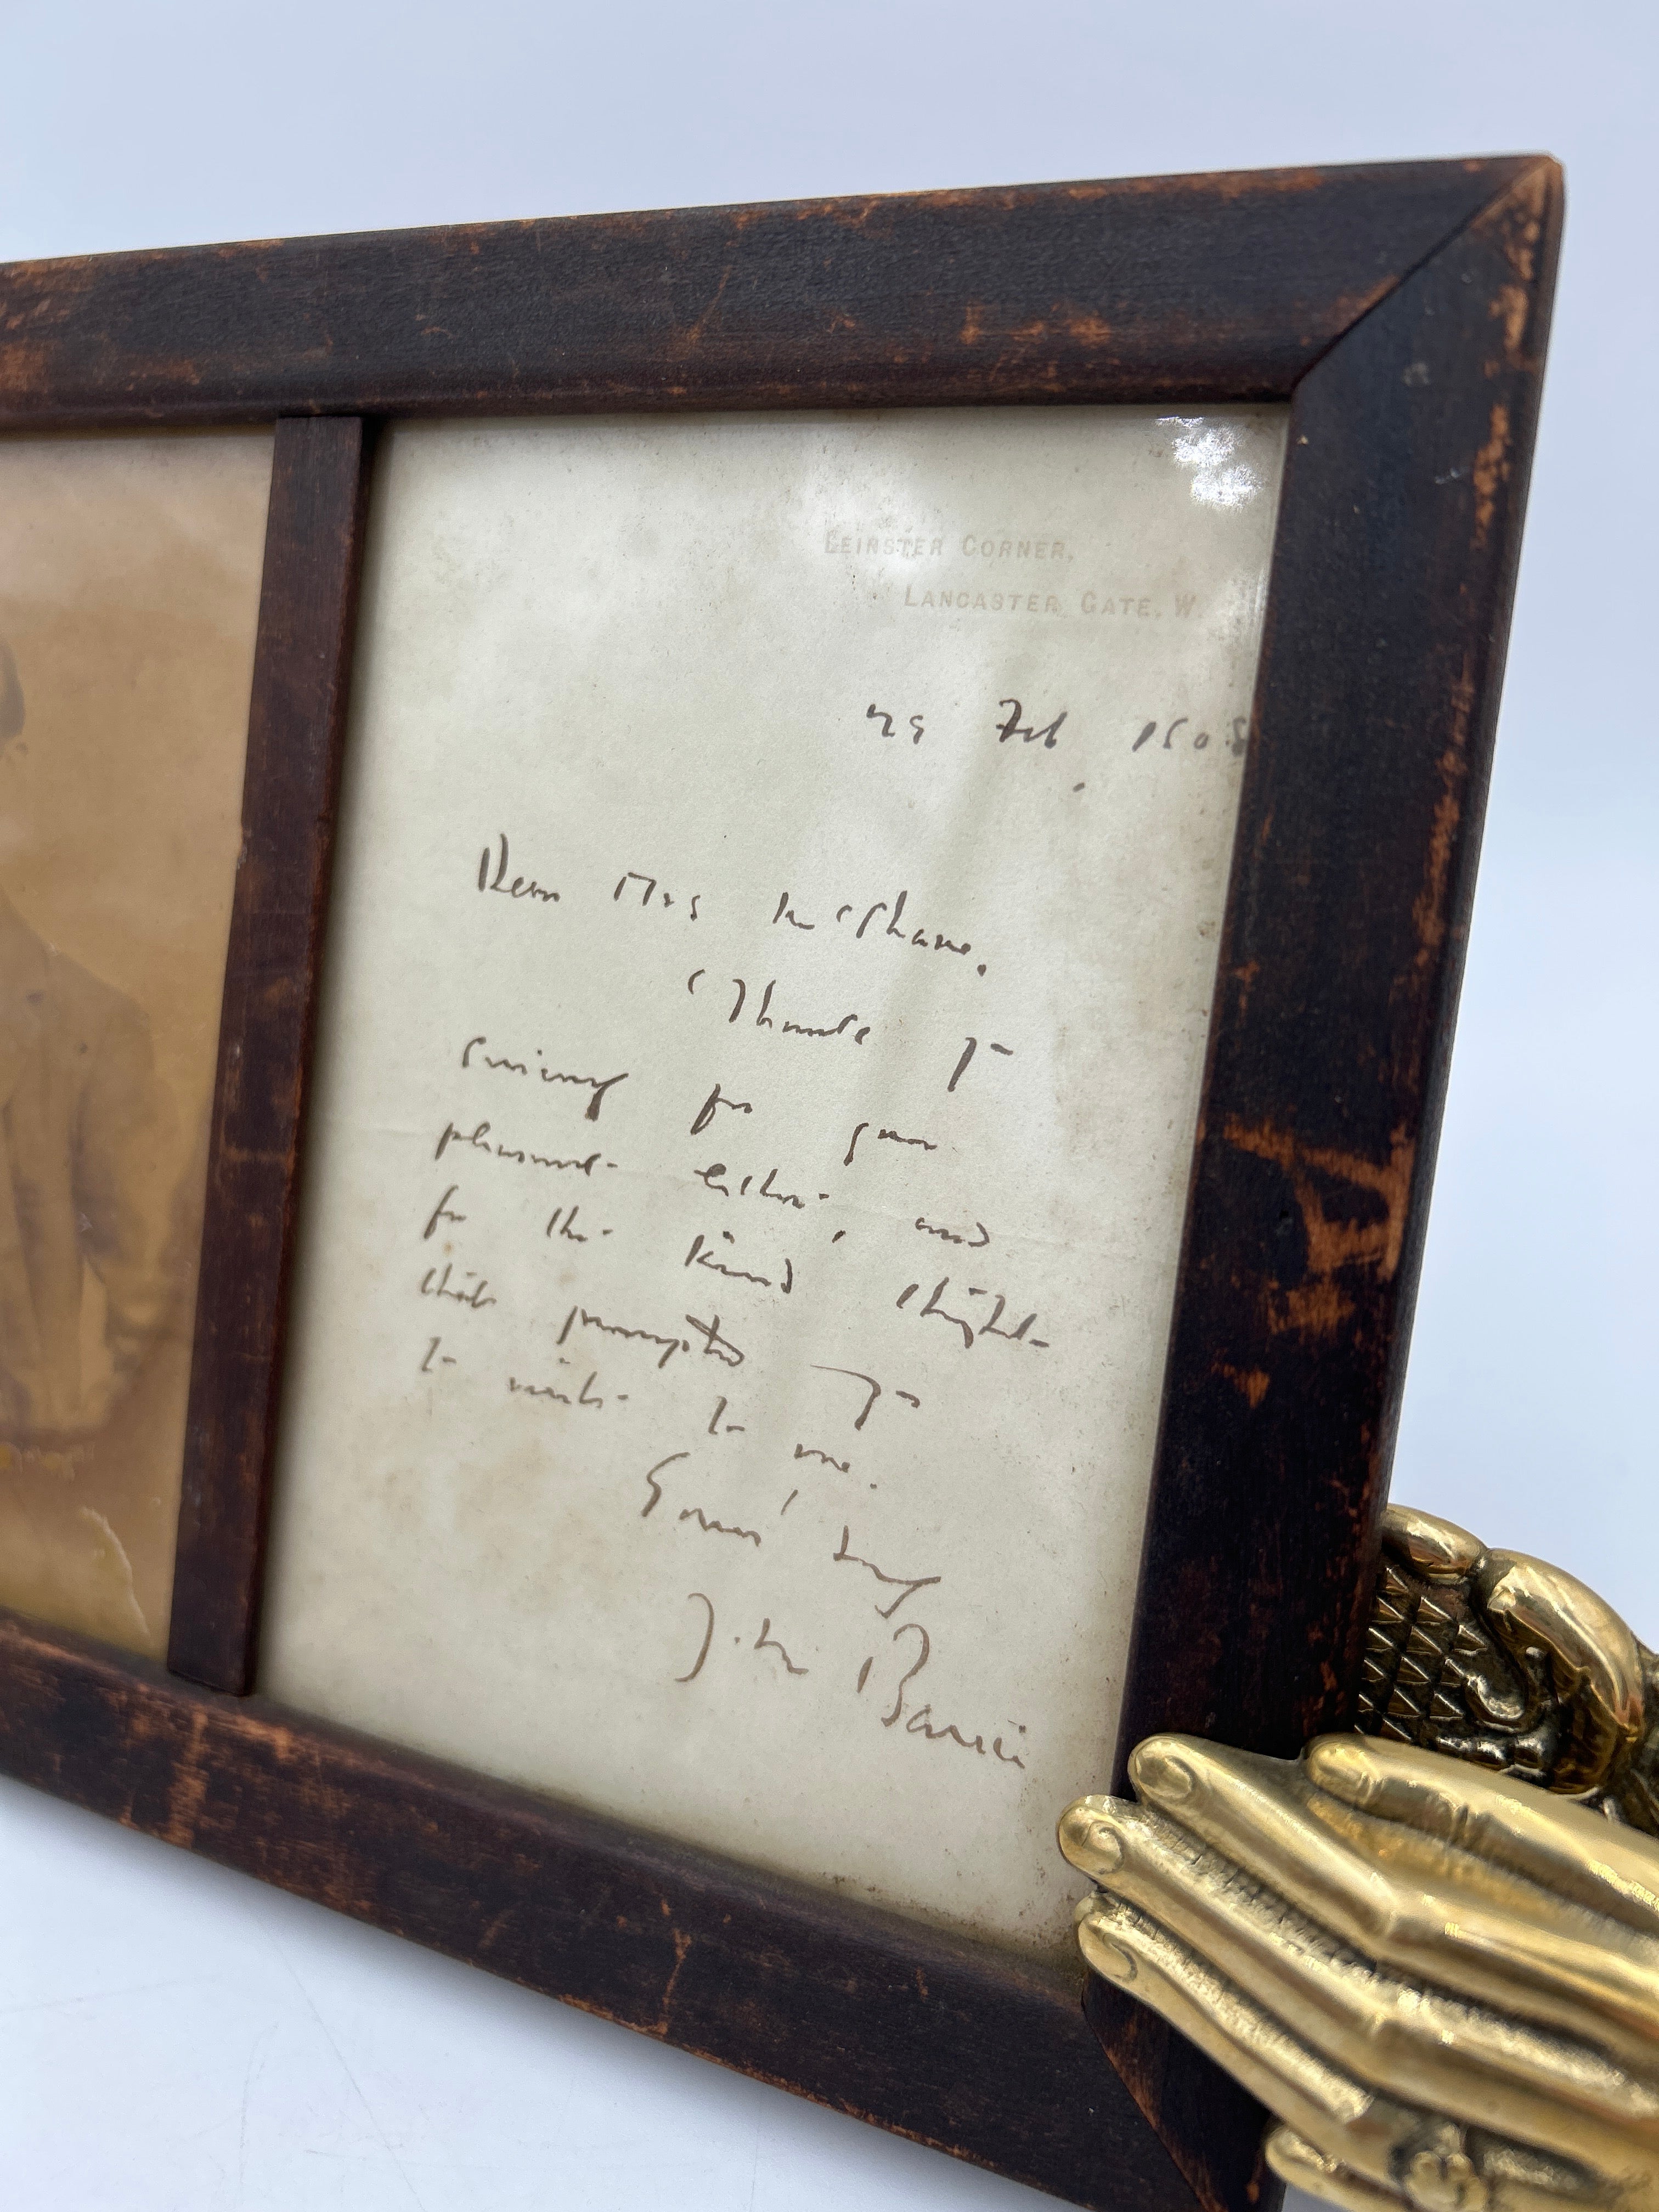 LEINSTER CORNER,
LANCASTER GATE. W.
29 Feb 1908
Dear Mrs McShane,
Thank you
sincerely for your
pleasant letter, and
for the kind thought
that prompted you
to write to me.
Yours truly
J. M. Barrie